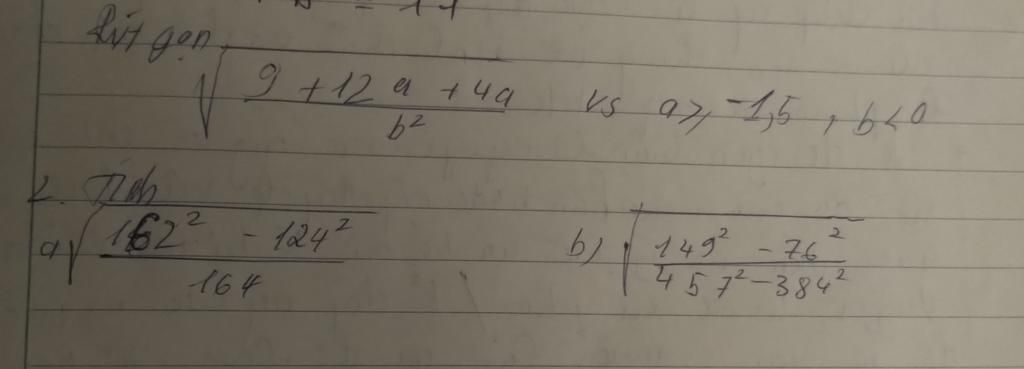 Rút gọn
√((9 + 12a + 4a)/b²) vs a ≥ -1,5 , b < 0
2. Tính
a) √((162² - 124²)/164) b) √((149² - 76²)/(457² - 384²))